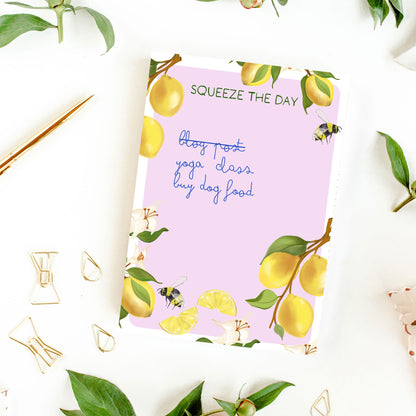 SQUEEZE THE DAY
blog post
yoga class
buy dog food